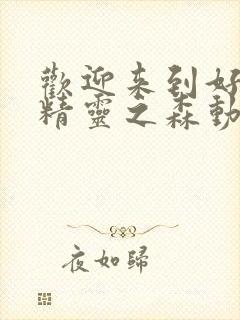 歡迎来到好
精靈之森動
夜如歸